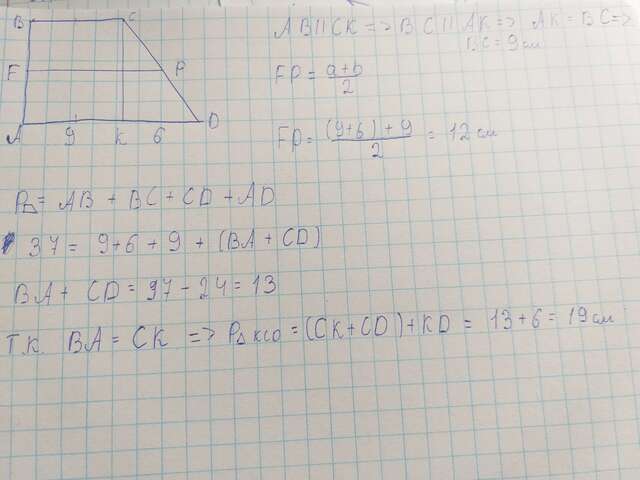 B C
F P
A 9 K 6 D
AB || CK => BC || AK => AK = BC =>
BC = 9 см
FP = a+b / 2
FP = (9+6)+9 / 2 = 12 см
P = AB + BC + CD + AD
37 = 9+6+9+(BA+CD)
BA + CD = 97 - 24 = 13
Т.К. BA = CK => P△KCD = (CK+CD)+KD = 13+6 = 19 см